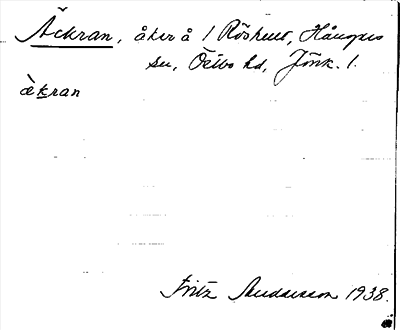 Äckran, åker å 1 Röshult, Hångers
sn, Östbo hd, Jönk. l.
àkran
Fritz Andersson 1938.